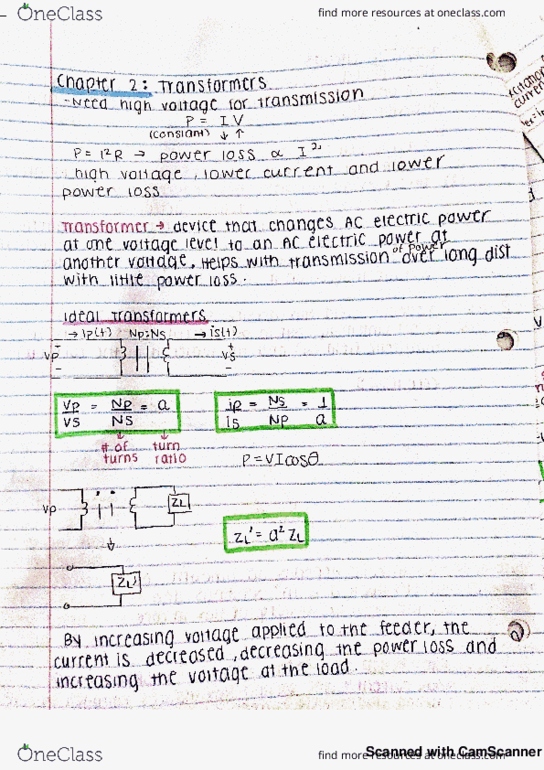 OneClass
find more resources at oneclass.com
Chapter 2: Transformers
-Need high voltage for transmission
P = IV
(constant) ↓ ↑
P = I²R → power loss ∝ I²
high voltage, lower current and lower
power loss
Transformer → device that changes AC electric power
at one voltage level to an AC electric power at
another voltage. Helps with transmission of power over long dist
with little power loss.
Ideal transformers
→ ip(t) Np:Ns → is(t)
Vp
Vs
Vp/Vs = Np/Ns = a
ip/is = Ns/Np = 1/a
# of turns
turn ratio
P = VIcosθ
Vp
ZL
ZL' = a² ZL
ZL'
By increasing voltage applied to the feeder, the
current is decreased, decreasing the power loss and
increasing the voltage at the load.
OneClass
find more resources at oneclass.com
Scanned with CamScanner